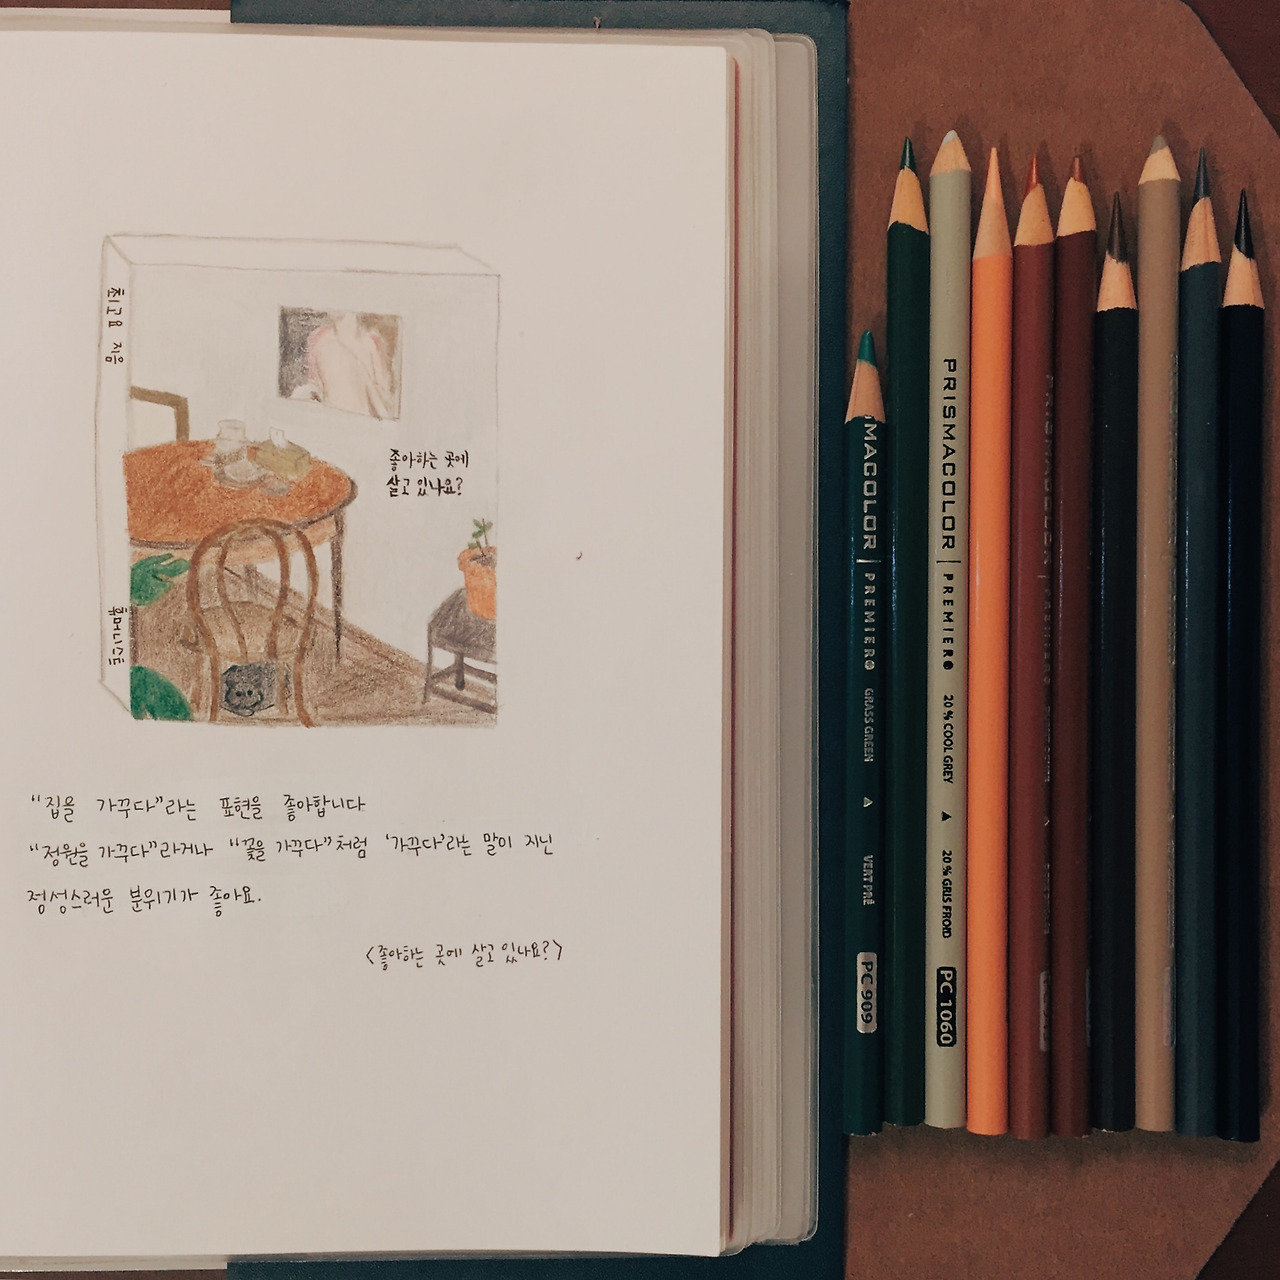 최고요 지음
휴머니스트
좋아하는 곳에
살고 있나요?
"집을 가꾸다"라는 표현을 좋아합니다
"정원을 가꾸다"라거나 "꽃을 가꾸다"처럼 '가꾸다'라는 말이 지닌
정성스러운 분위기가 좋아요.
<좋아하는 곳에 살고 있나요?>
MACOLOR PREMIER GRASS GREEN VERT PRÉ PC 909
PRISMACOLOR PREMIER 20% COOL GREY 20% GRIS FROID PC 1060